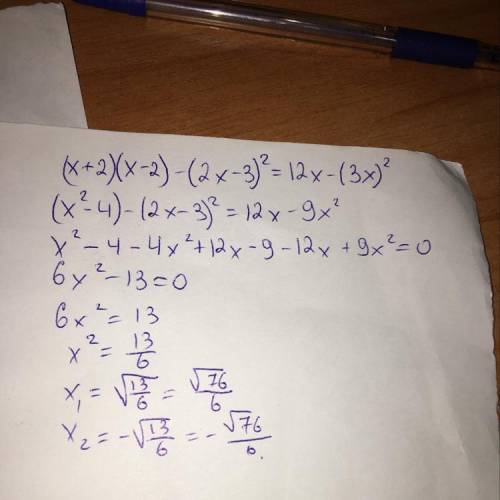 (x+2)(x-2)-(2x-3)²=12x-(3x)²
(x²-4)-(2x-3)²=12x-9x²
x²-4-4x²+12x-9-12x+9x²=0
6x²-13=0
6x²=13
x²=13/6
x₁=√13/6=√76/6
x₂=-√13/6=-√76/6.